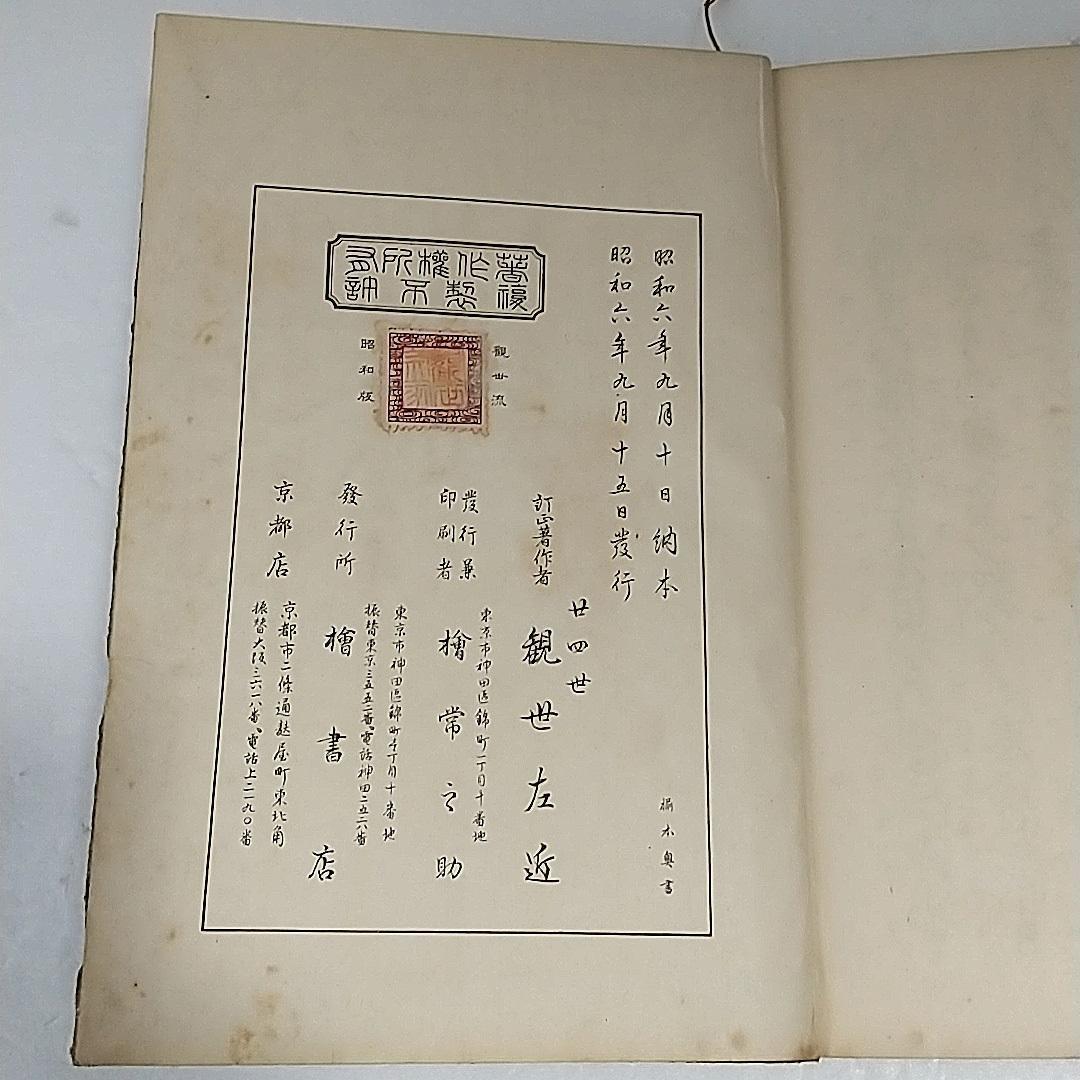 昭和六年九月十日納本
昭和六年九月十五日發行
著作權所有
複製不許
觀世流
昭和版
訂正著作者
廿四世
観世左近
發行兼
印刷者
東京市神田區錦町一丁目十番地
檜常之助
發行所
東京市神田區錦町一丁目十番地
振替東京三五五二番、電話神田二五二六番
檜書店
京都店
京都市二條通麩屋町東北角
振替大阪三六一八番、電話上二一九〇番